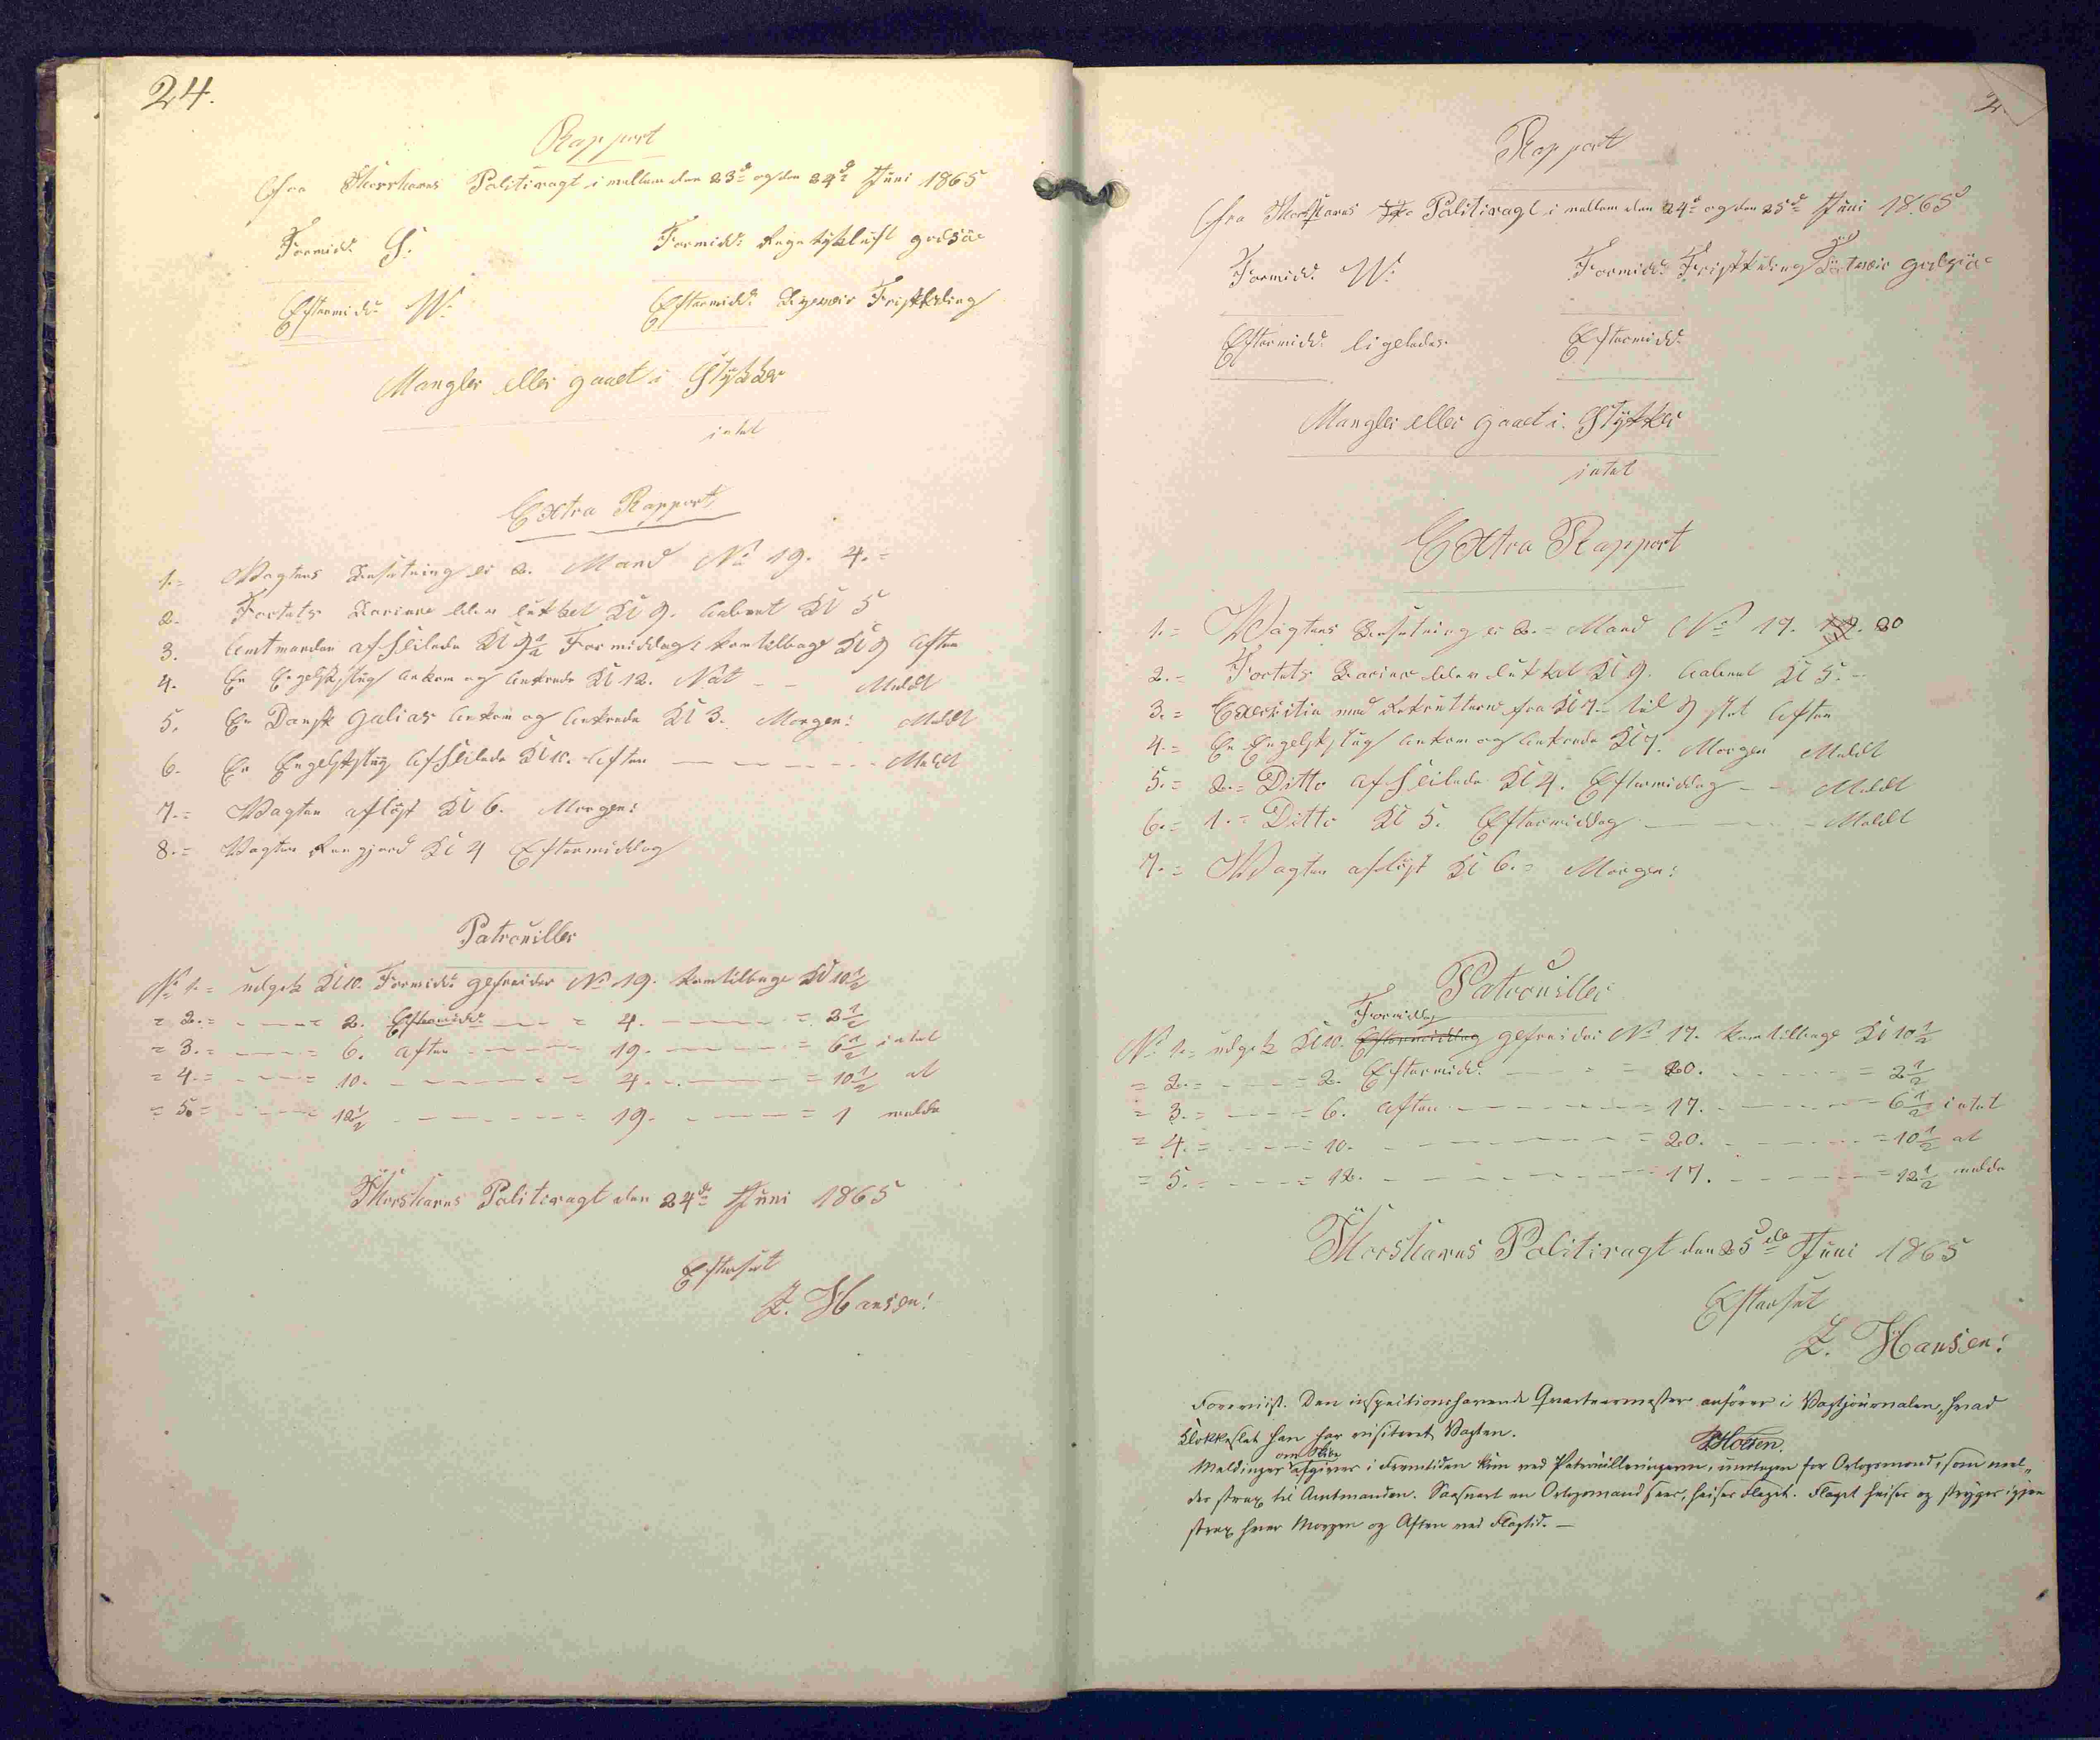 24.
Rapport
fra Thorshavns Politivagt i mellem den 23d og den 24d Juni 1865
Formidd: S. Formidd: Regn tykluft god söe
Eftermidd: W: Eftermidd: Frisk kuling
Mangler eller gaaet i Stykker
intet
Extra Rapport
1.= Vagtens Besætning er 2. Mand No 19. 4.=
2. Fortets Bariere blev lukket Kl 9. aabnet Kl 5
3. Amtmanden afseilede Kl 9½ Formiddag: kom tilbage Kl 9 Aften
4. En Engelskslup ankom og ankrede Kl 12. Nat - - Meldt
5. En Dansk Galias ankom og ankrede Kl 3. Morgen: Meldt
6. En Engelskslup afseilede Kl 10. Aften - - - - - Meldt
7.= Vagten aflöst Kl 6. Morgen:
8.= Vagten Rengjord Kl 4 Eftermiddag
Patrouiller
No 1.= udgik Kl 10. Formidd: gefreider No 19. kom tilbage Kl 10½
= 2.= - - = 2. Eftermidd: - - = 4. - - - = 2½
= 3.= - - = 6. Aften - - - 19. - - - = 6½ intet
= 4.= - - = 10. - - - - = 4. - - - = 10½ at
= 5.= - - = 12½ - - - - = 19. - - - = 1 melde
Thorshavns Politivagt den 24de Juni 1865
Efterset
Z. Hansen!
2
Rapport
fra Thorshavns Politivagt i mellem den 24d og den 25d Juni 1865
Formidd: W: Formidd: Frisk kuling god söe
Eftermidd: ligeledes Eftermidd:
Mangler eller gaaet i Stykker
intet
Extra Rapport
1.= Vagtens Besætning er 2.= Mand No 17. 20
2.= Fortets Bariere blev lukket Kl 9. aabnet Kl 5.-
3.= Exersitia med Rekrutterne fra Kl 7. til 9 slet Aften
4.= En Engelskslup ankom og ankrede Kl 7. Morgen Meldt
5.= 2.= Ditto afseilede Kl 4. Eftermiddag - - Meldt
6.= 1.= Ditto Kl 5. Eftermiddag - - - Meldt
7.= Vagten aflöst Kl 6.= Morgen:
Patrouiller
Formiddag
No 1.= udgik Kl 10. Eftermiddag gefreider No 17. kom tilbage Kl 10½
= 2.= - - = 2. Eftermidd: - - = 20. - - - = 2½
= 3.= - - = 6. Aften - - - = 17. - - - = 6½ intet
= 4.= - - = 10. - - - - = 20. - - - = 10½ at
= 5.= - - = 12. - - - - = 17. - - - = 12½ melde
Thorshavns Politivagt den 25de Juni 1865
Efterset
Z. Hansen!
Foreviist. Den inspectionshavende Qvarteermester anförer i Vagtjournalen, hvad
Klokkeslet han har visiteret Vagten.
Holten.
om Skibe
Meldinger afgives i Fremtiden kun ved Patrouilleringerne, undtagen for Orlogsmænd, som mel-
des strax til Amtmanden. Saasnart en Orlogsmand sees, heises Flaget. Flaget heises og stryges igjen
strax hver Morgen og Aften ved Flagtid. —